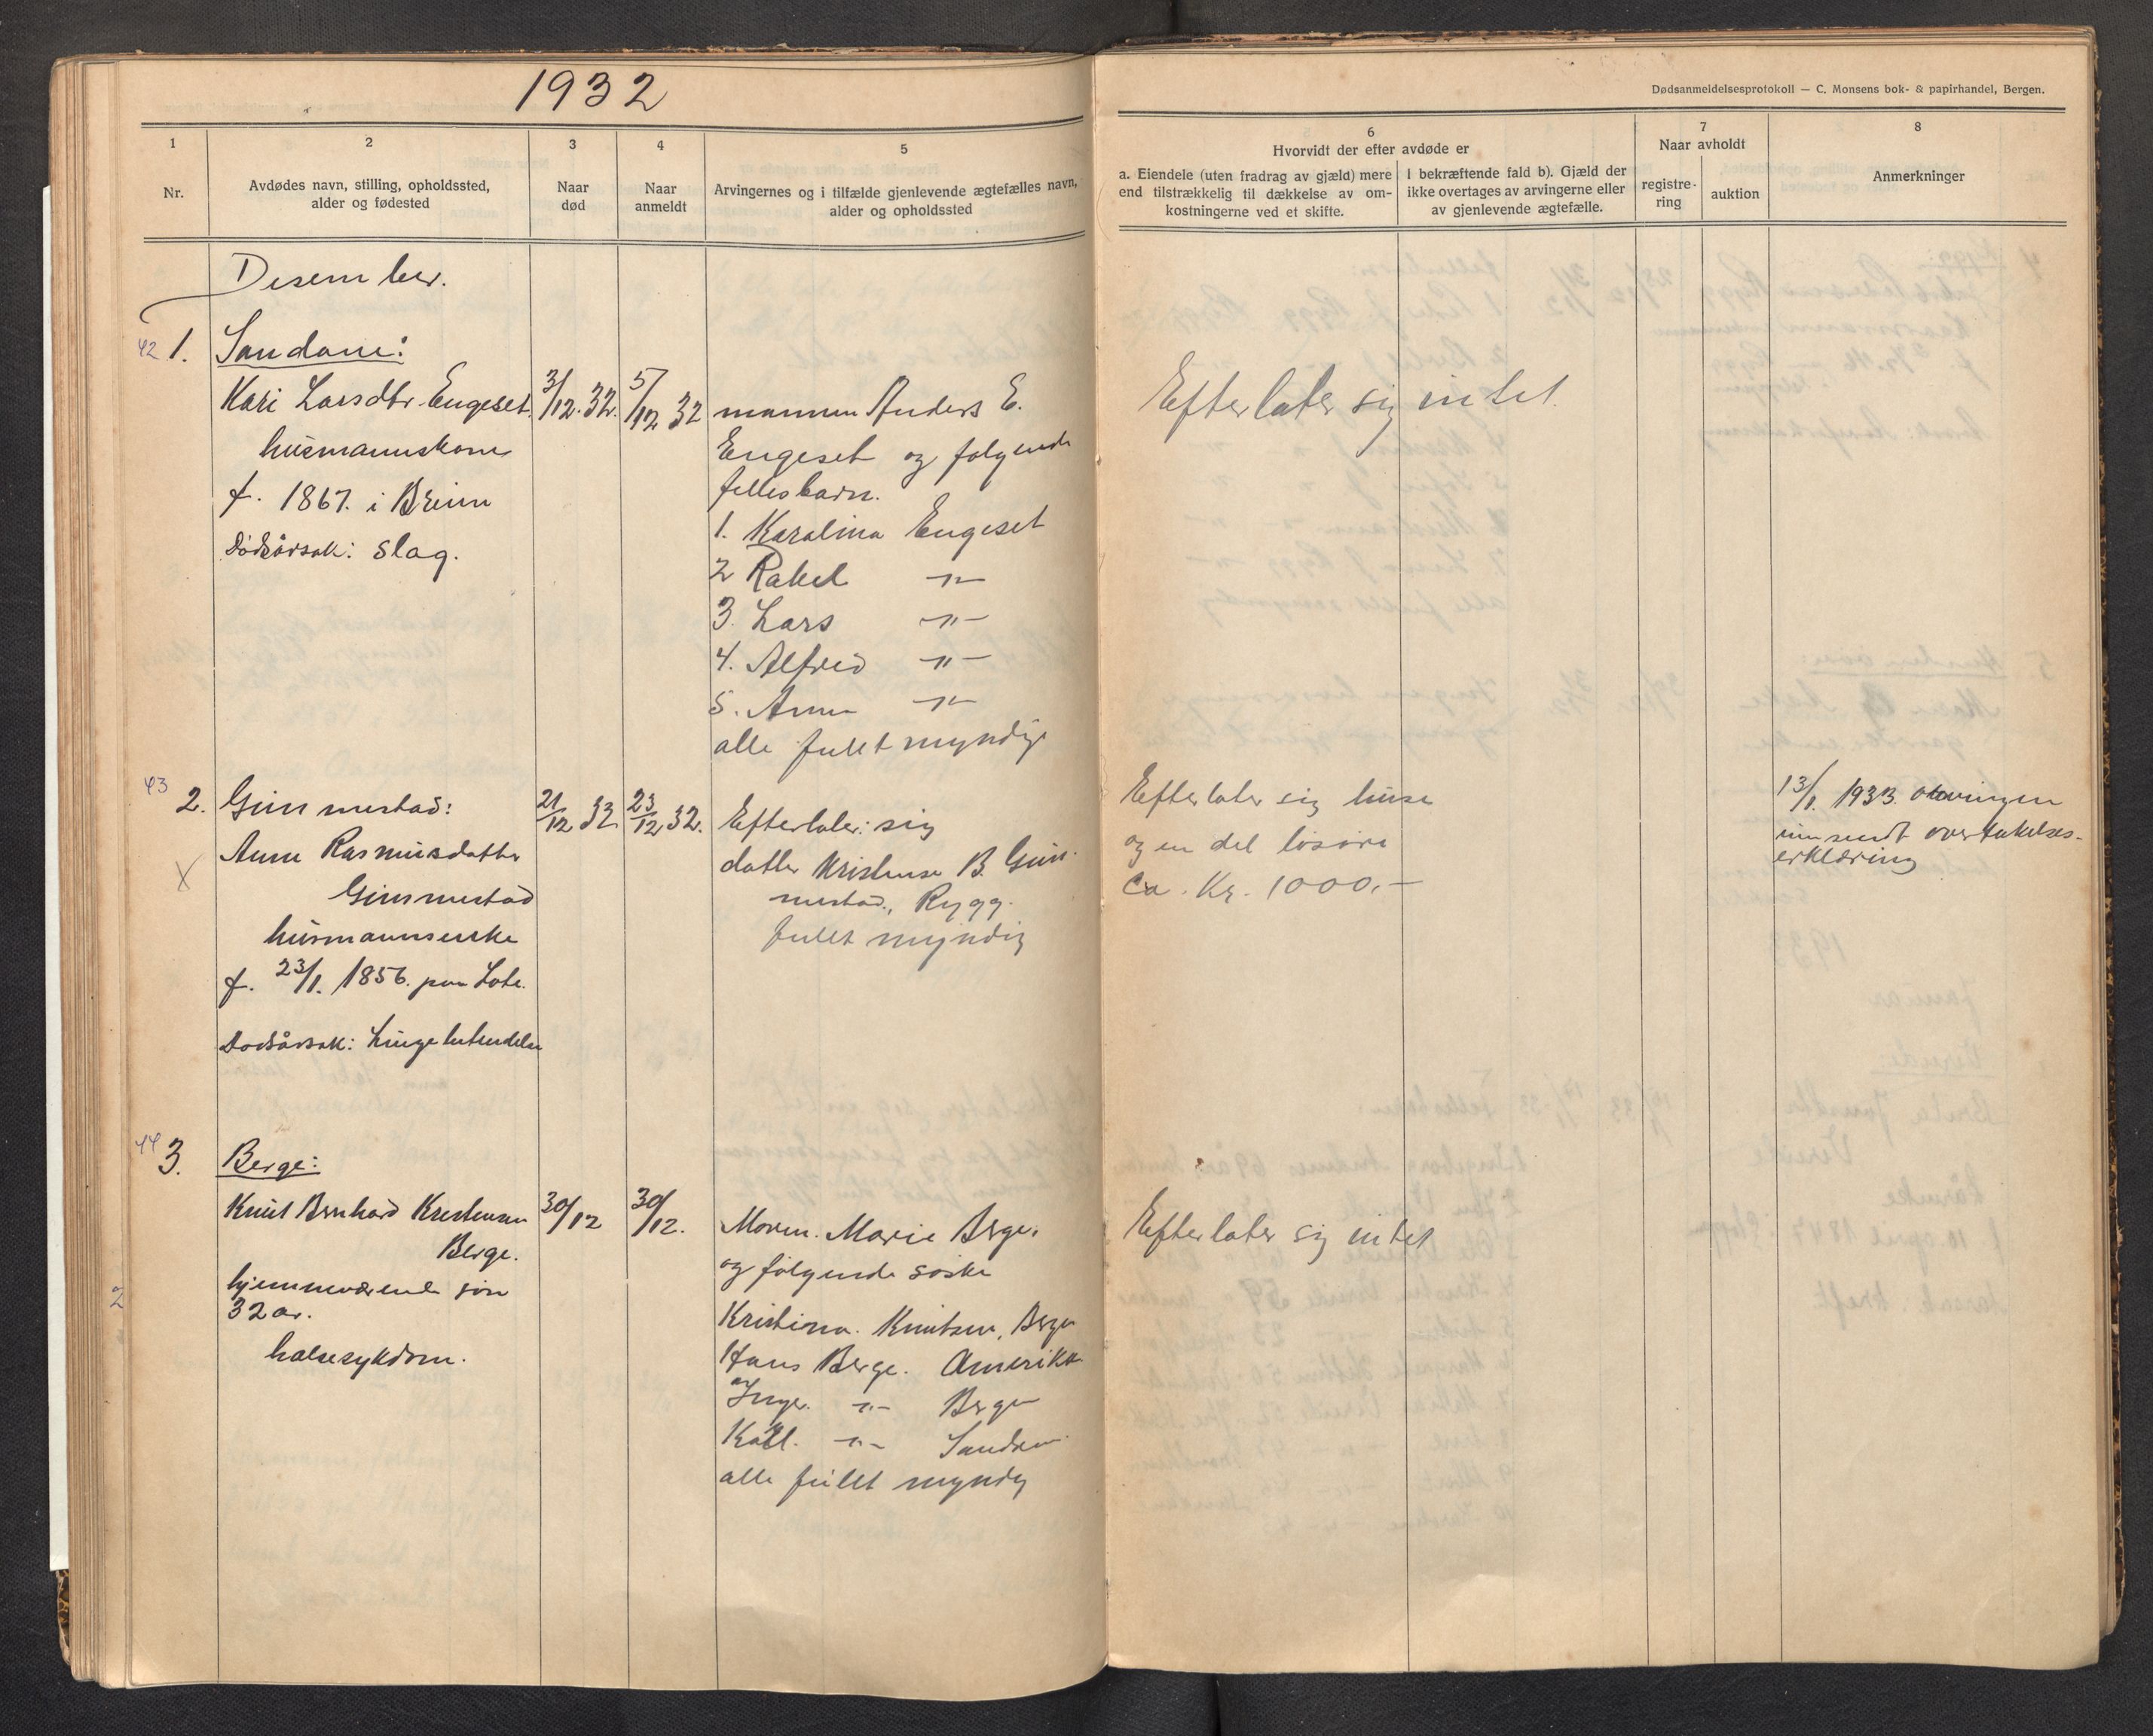 1932
Dødsanmeldelsesprotokoll — C. Monsens bok- & papirhandel, Bergen.
1
Nr.
2
Avdødes navn, stilling, opholdssted,
alder og fødested
3
Naar
død
4
Naar
anmeldt
5
Arvingernes og i tilfælde gjenlevende ægtefælles navn,
alder og opholdssted
6
Hvorvidt der efter avdøde er
a. Eiendele (uten fradrag av gjæld) mere
end tilstrækkelig til dækkelse av om-
kostningerne ved et skifte.
I bekræftende fald b). Gjæld der
ikke overtages av arvingerne eller
av gjenlevende ægtefælle.
7
Naar avholdt
registre-
ring
auktion
8
Anmerkninger
Desember.
42 1.
Sandane:
Kari Larsdtr. Engeset.
husmannskone
f. 1867. i Breim
Dødsårsak: slag.
3/12. 32.
5/12 32
mannen Anders E.
Engeset og følgende
fellesbarn.
1. Karalina Engeset
2 Rakel -"-
3. Lars -"-
4. Alfred -"-
5. Anna -"-
alle fullt myndige
Efterlater sig intet.
43 2.
X
Gimmestad:
Anne Rasmusdatter
Gimmestad
husmannsenke
f. 23/1. 1856. paa Lote.
Dødsårsak: Lungebetendelse
21/12 32
23/12 32.
Efterlater: sig
datter Kristense B. Gim-
mestad., Rygg.
fullt myndig
Efterlater sig huse
og en del løsøre
Ca. Kr. 1000.-
13/1. 1933. arvingen
innsendt overtakelses-
erklæring
44 3.
Berge:
Knut Bernhard Kristensen
Berge.
hjemmeværende søn
32 år.
halsesykdom.
30/12
30/12.
Moren. Marie Berge.
og følgende søsken
Kristina. Knutsen, Bergen
Hans Berge. Amerika
Inger. -"- Bergen
Karl. -"- Sandane
alle fullt myndig
Efterlater sig intet
2